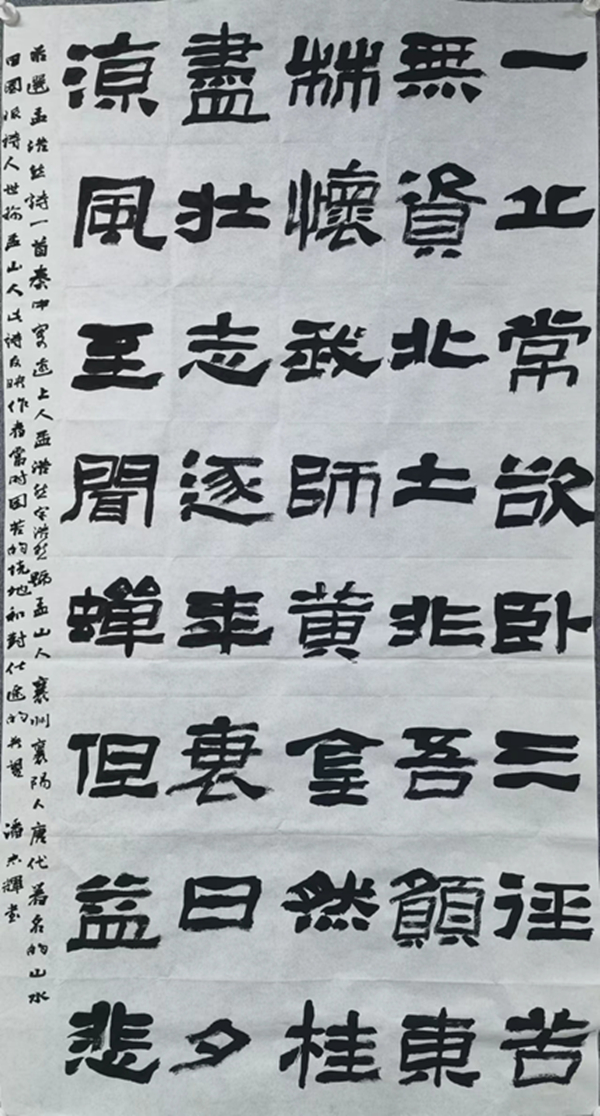 一丘常欲卧三徑苦
無資北土非吾願東
林懷我師黄金然桂
盡壮志逐年衰日夕
涼風至聞蟬但益悲
選孟浩然詩一首秦中寄遠上人孟浩然字浩然號孟山人襄州襄陽人唐代著名的山水
田園派詩人世稱孟山人此詩反映作者當時困苦的境地和對仕途的失望 潘忠輝書